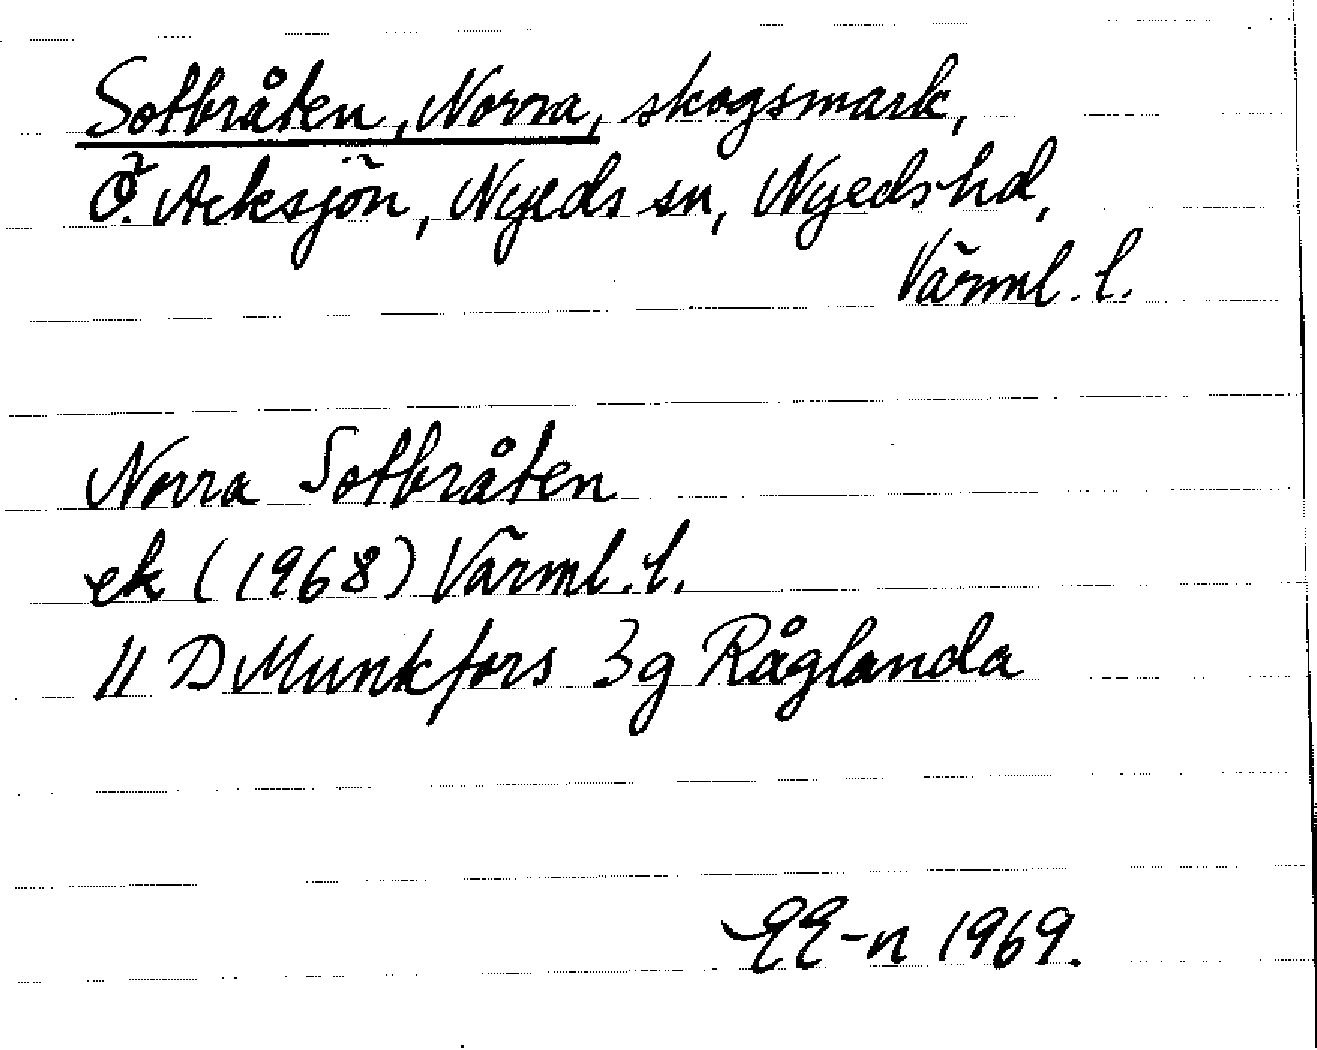 Sotbråten, Norra, skogsmark,
Ö. Acksjön, Nyeds sn, Nyeds hd,
Värml. l.
Norra Sotbråten
ek (1968) Värml. l.
11 D Munkfors 3g Råglanda
EE-n 1969.